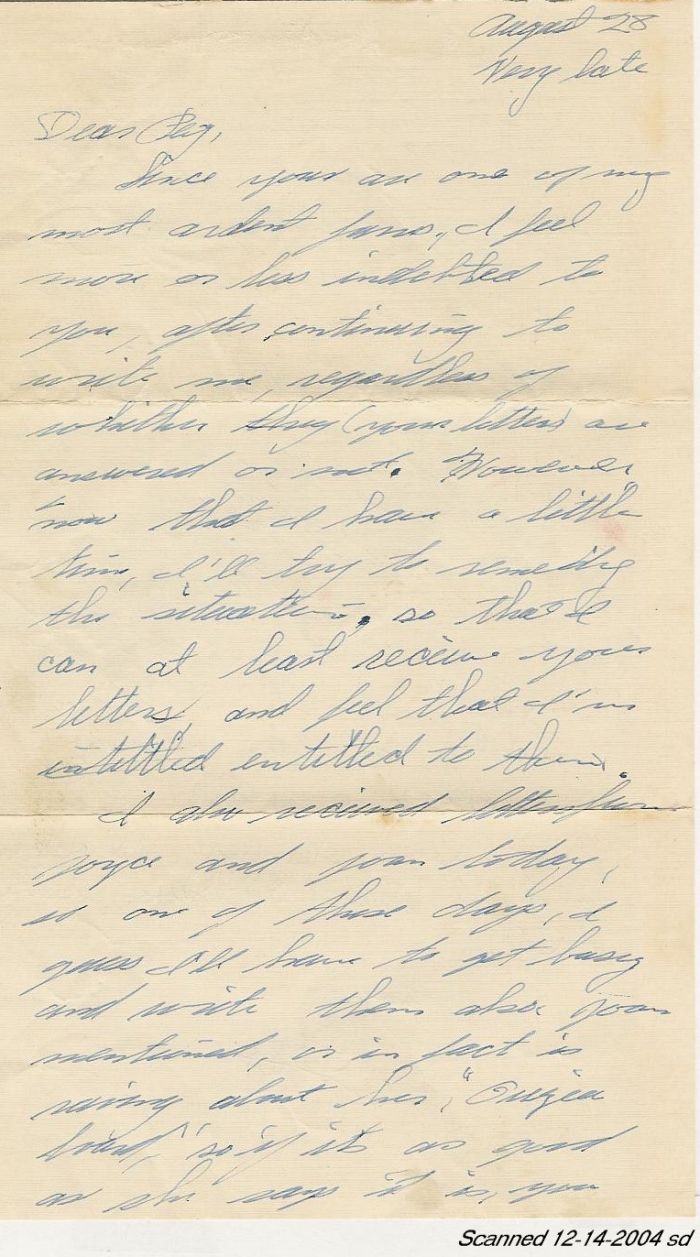 August 28
Very late
Dear Peg,
Since your are one of my
most ardent fans, I feel
more or less indebted to
you, after continuing to
write me, regardless of
whither they (your letters) are
answered or not. However,
now that I have a little
time, I'll try to remedy
the situation, so that I
can at least receive your
letters, and feel that I'm
intitled entitled to them.
I also recieved letters from
Joyce and Joan today,
so one of these days, I
guess I'll have to get busy
and write them also. Joan
mentioned, or in fact is
raving about her, "Ouijea
board," so if its as good
as she says it is, you
Scanned 12-14-2004 sd